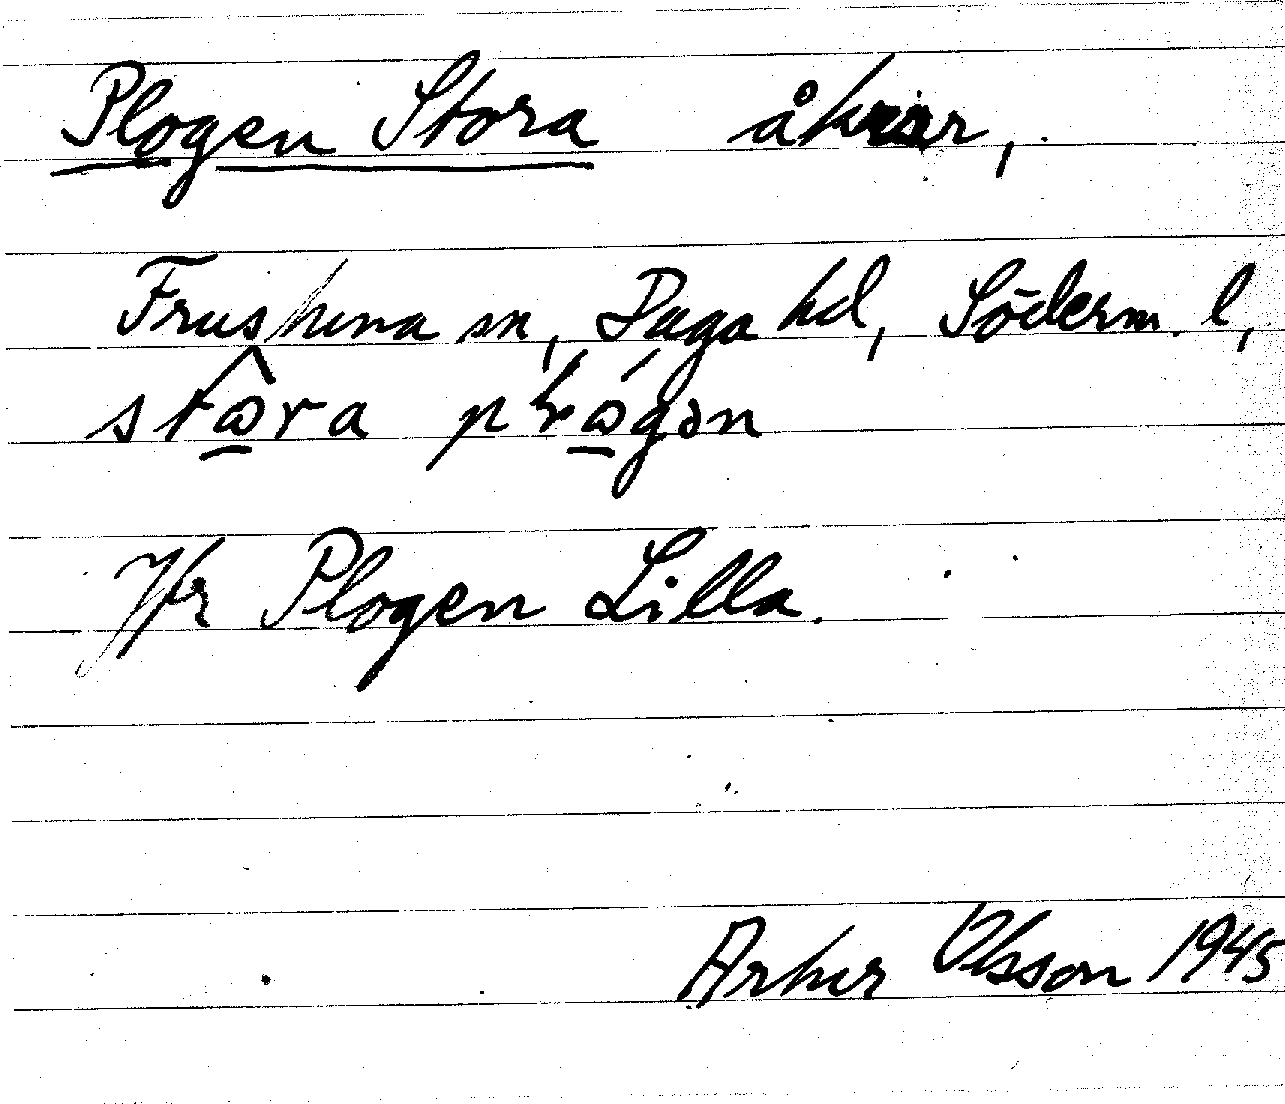 Plogen Stora åkrar,
Frustuna sn, Daga hd, Söderm. l,
Jfr Plogen Lilla.
Arthur Olsson 1945